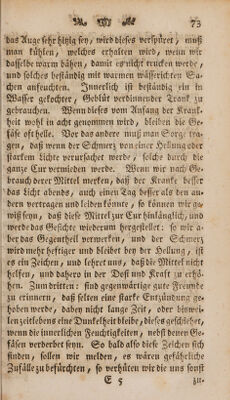 73
das Auge sehr hitzig sey, wird dieses verspüret, muß
man kühlen, welches erhalten wird, wenn wir
dasselbe warm hähen, damit es nicht trucken werde,
und solches beständig mit warmen wässerichten Sa-
chen anfeuchten. Innerlich ist beständig ein in
Wasser gekochter, Geblüt verdinnender Trank zu
gebrauchen. Wenn dieses vom Anfang der Krank-
heit wohl in Obacht genommen wird, bleiben die Ge-
fäse oft helle. Vor das andere muß man Sorge tra-
gen, daß wenn der Schmerz von einer Hellung oder
starkem Lichte verursachet werde, solche durch die
ganze Cur vermieden werde. Wenn wir nach Ge-
brauch derer Mittel merken, daß der Kranke besser
das Licht abends, auch einen Tag besser als den an-
dern vertragen und leiden könnte, so können wir ge-
wiß seyn, daß diese Mittel zur Cur hinlänglich, und
werde das Gesichte wiederum hergestellet: so wir a-
ber das Gegentheil vormerken, und der Schmerz
wird mehr heftiger und bleibet bey der Hellung, ist
es ein Zeichen, und lehret uns, daß die Mittel nicht
helfen, und dahero in der Dosi und Kraft zu erhö-
hen. Zum dritten: sind gegenwärtige gute Freunde
zu erinnern, daß selten eine starke Entzündung ge-
hebet werde, dabey nicht lange Zeit, oder biswei-
len zeitlebens eine Dunkelheit bleibe, dieses geschiehet,
wenn die innerlichen Feuchtigkeiten, nebst denen Ge-
fäsen verderbet seyn. So bald also diese Zeichen sich
finden, sollen wir melden, es wären gefährliche
Zufälle zu befürchten, so verhüten wir die uns sonst
E 5
zu-